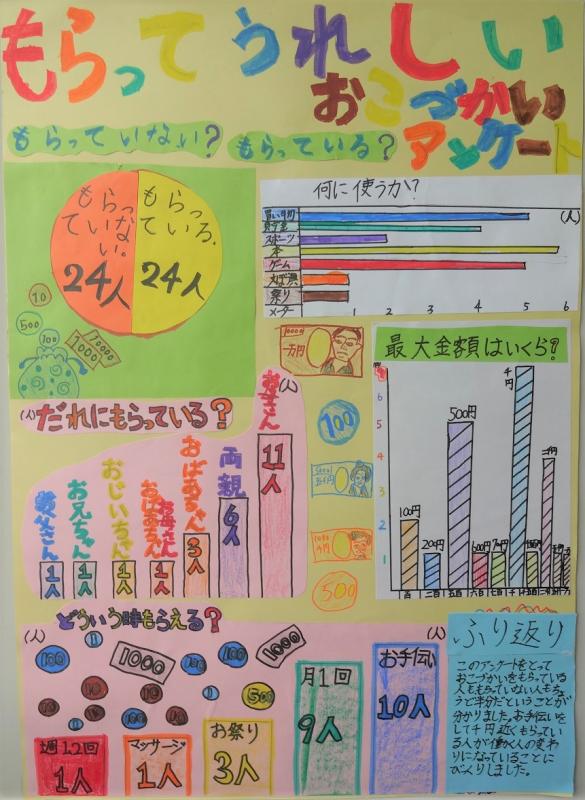 もらってうれしい
おこづかい
アンケート
もらっていない?
もらっている?
もらっ
ていな
い。
24人
もらっ
ている.
24人
10
500
100
1000
10000
何に使うか?
(人)
買い物
貯金
スポーツ
本
ゲーム
祭り
0 1 2 3 4 5 6
10000
一万円
100
500
最大金額はいくら?
6
5
4
3
2
1
100円
200円
500円
600円
千円
二千円
(人)だれにもらっている?
(人)
1人
お兄ちゃん
1人
おじいちゃん
1人
1人
おばあちゃん
3人
両親
6人
お母さん
11人
どういう時もらえる?
(人)
(人)
100
1000
100
100
1000
10
10
10
500
週1.2回
1人
マッサージ
1人
お祭り
3人
月1回
9人
お手伝い
10人
ふり返り
このアンケートをとって
おこづかいをもらっている
人ともらっていない人もちょ
うど半分だということが
分かりました。お手伝いを
して千円近くもらってい
る人が働く人の変わ
りになっていることに
びっくりしました。